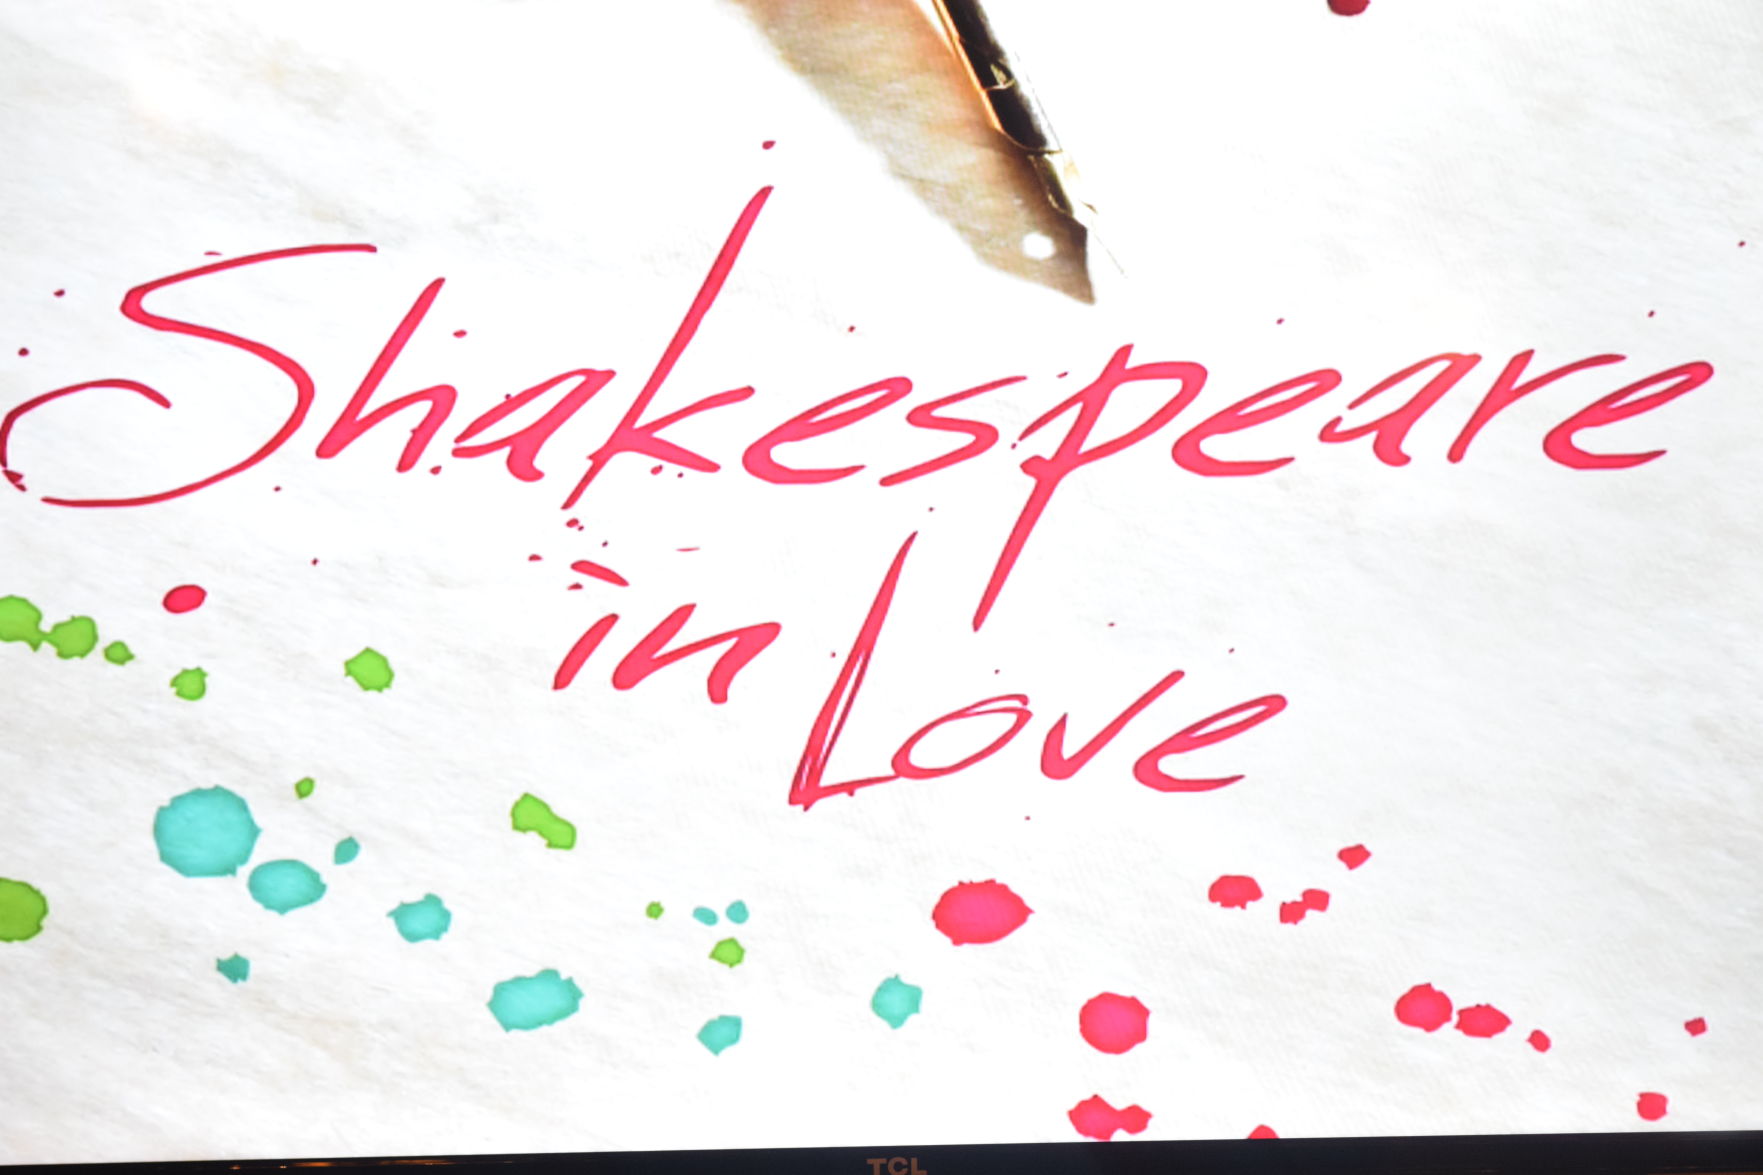 Shakespeare
in Love
TCL